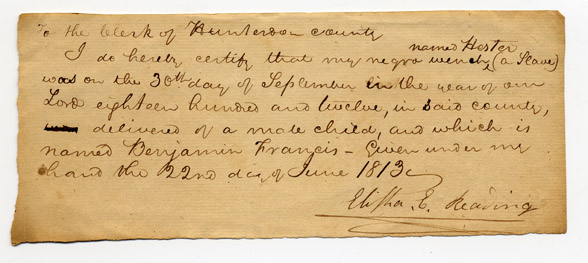 To the Clerk of Hunterdon county
I do hereby certify that my negro wench named Hester (a Slave)
was on the 30th day of September in the year of our
Lord eighteen hundred and twelve, in said county,
delivered of a male child, and which is
named Benjamin Francis – Given under my
hand the 22nd day of June 1813
Elisha E. Reading